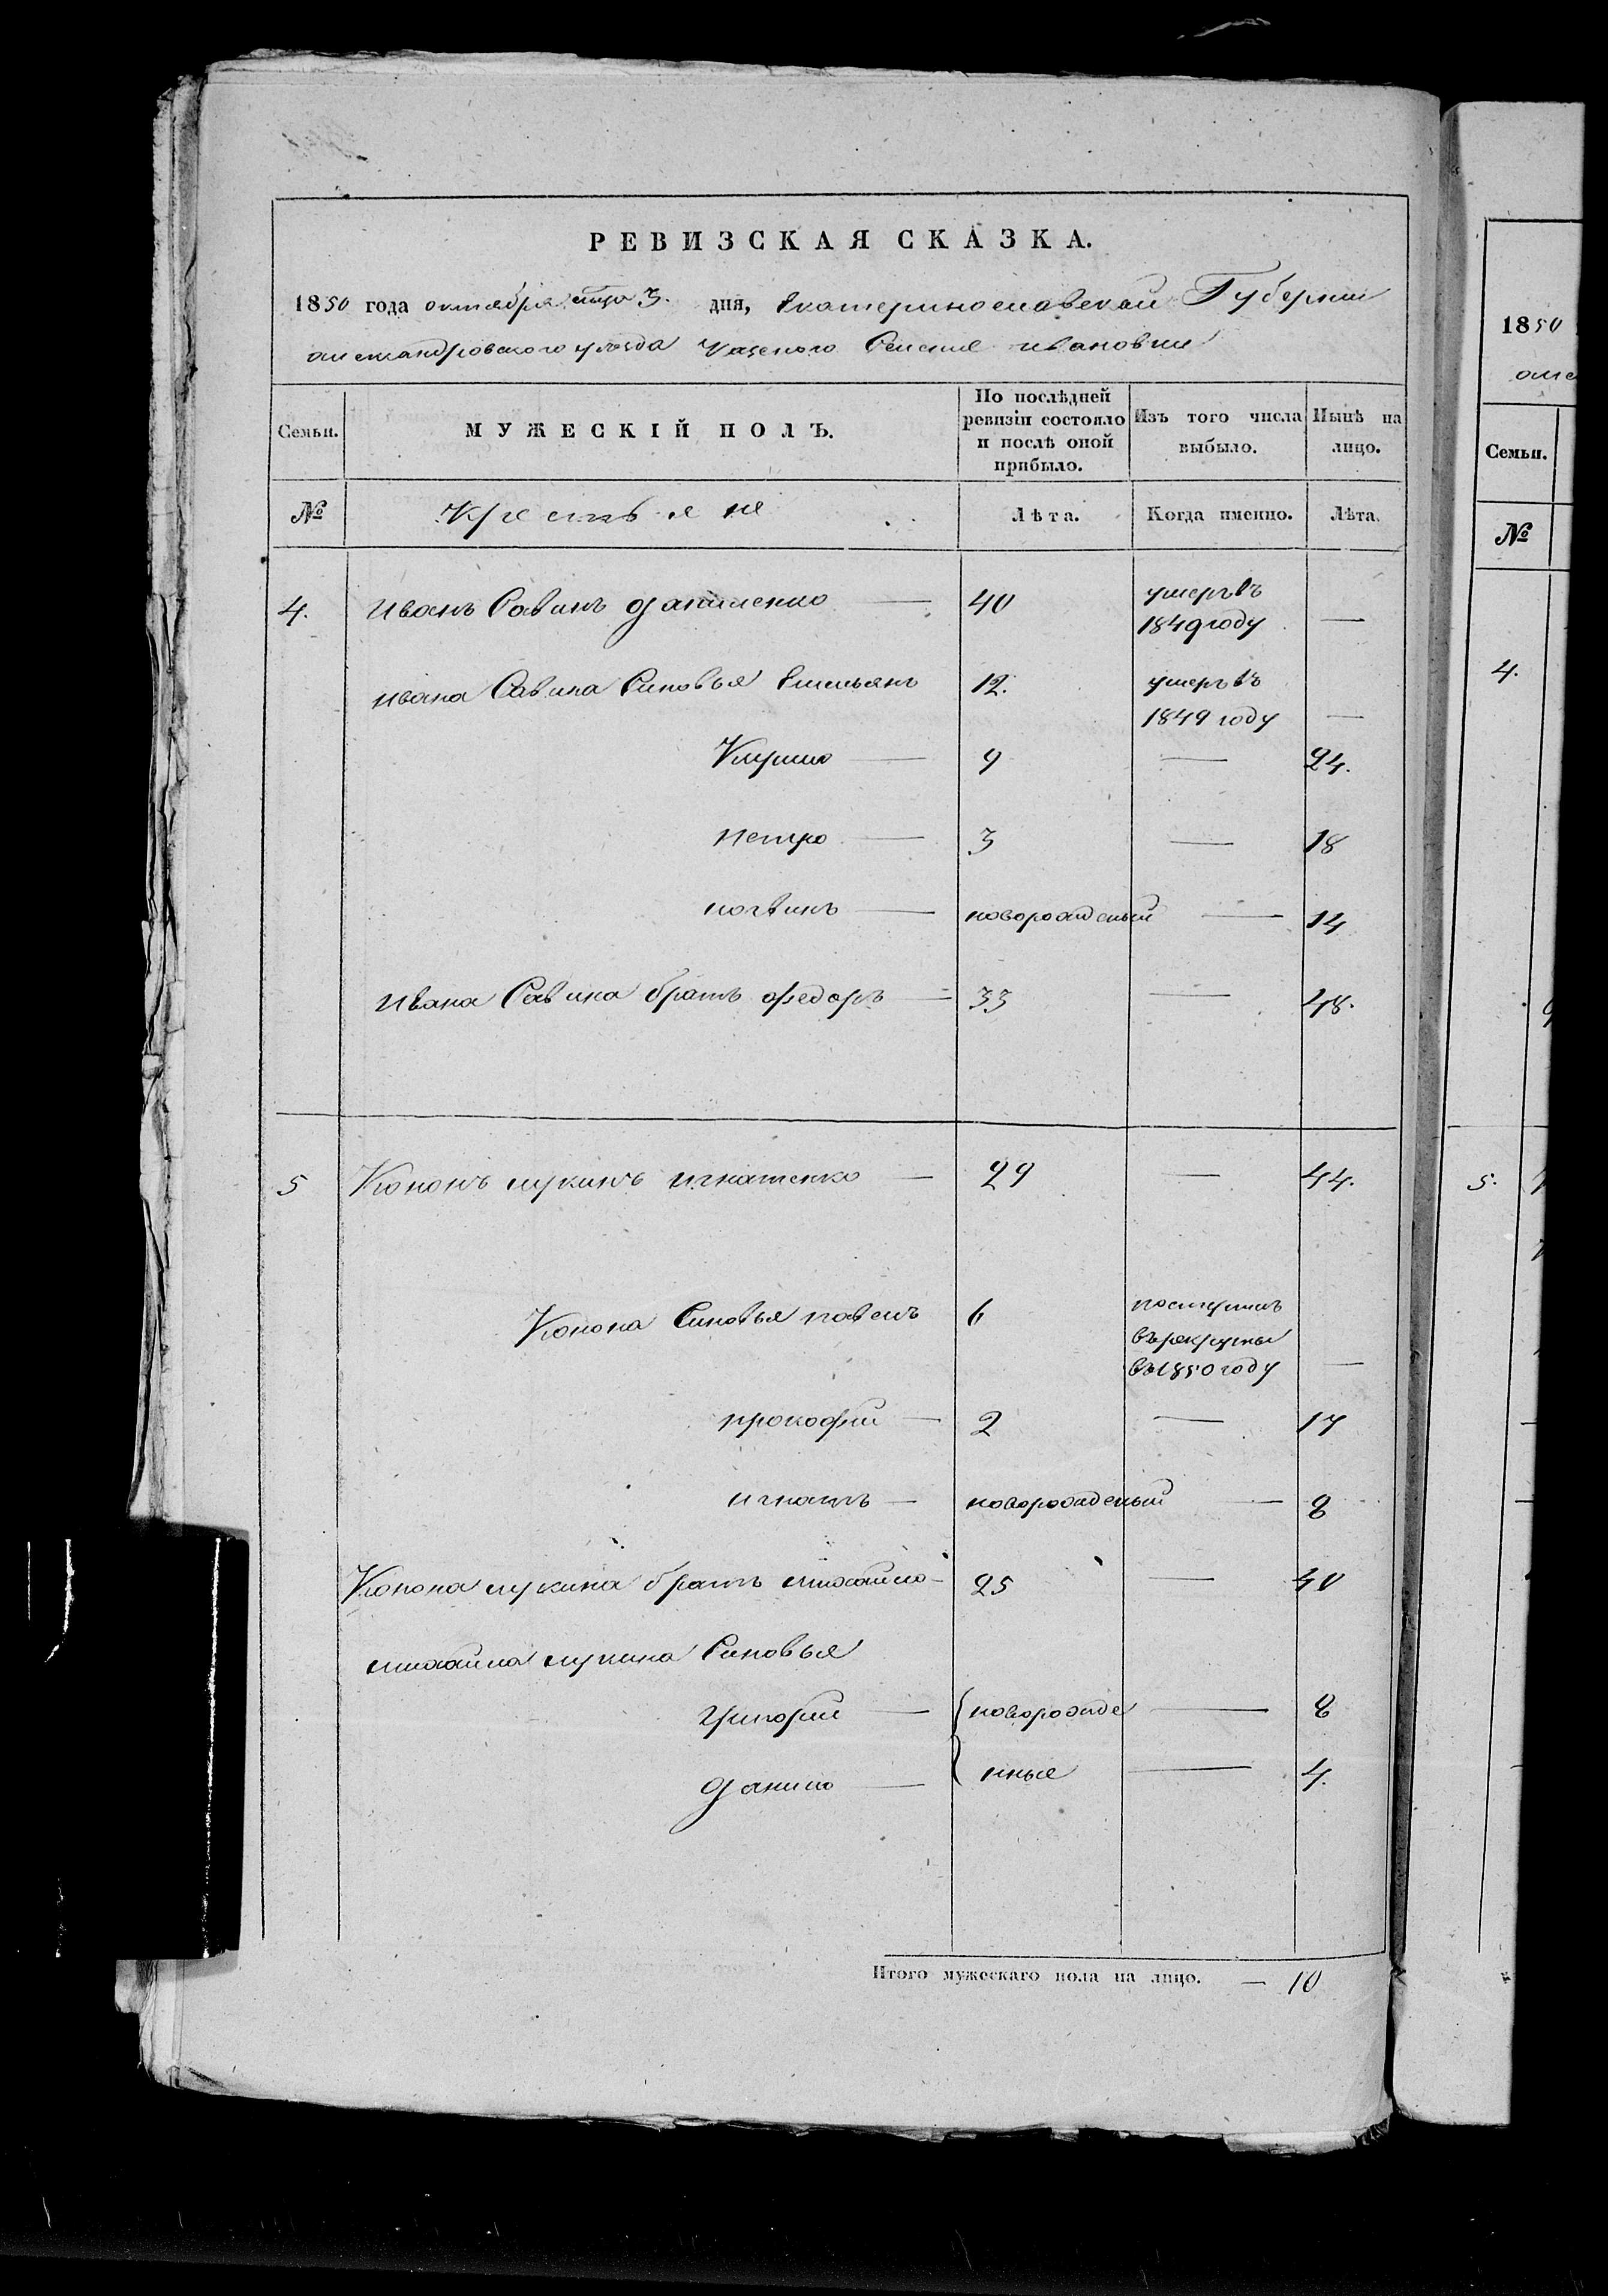 РЕВИЗСКАЯ СКАЗКА.
1850 года октября 3. дня, Екатеринославской Губернии
александровского уезда Казеного Селение ивановки
Семьи.
МУЖЕСКІЙ ПОЛЪ.
По послѣдней ревизіи состояло и послѣ оной прибыло.
Изъ того числа выбыло.
Нынѣ на лицо.
№ Крестьяне Лѣта. Когда именно. Лѣта.
4. иванъ Савинъ даниленко — 40 умеръ въ 1849 году —
ивана Савина Синовья Емельянъ 12. умеръ въ 1849 году —
9 — 24.
петро — 3 — 18
логвинъ — новорожденый — 14
ивана Савина братъ федоръ — 33 — 48.
5 Кононъ лукинъ игнатенко — 29 — 44.
Конона Синовья павелъ 6 поступилъ в рекруты въ 1850 году —
прокофий — 2 — 17
игнатъ — новорожденый — 8
Конона лукина братъ михайло — 25 — 40
михайла лукина Синовья
григорий — новорожде — 8
данило — нные — 4.
Итого мужескаго пола на лицо. — 10
1850
але
Семьи.
№
4.
5.